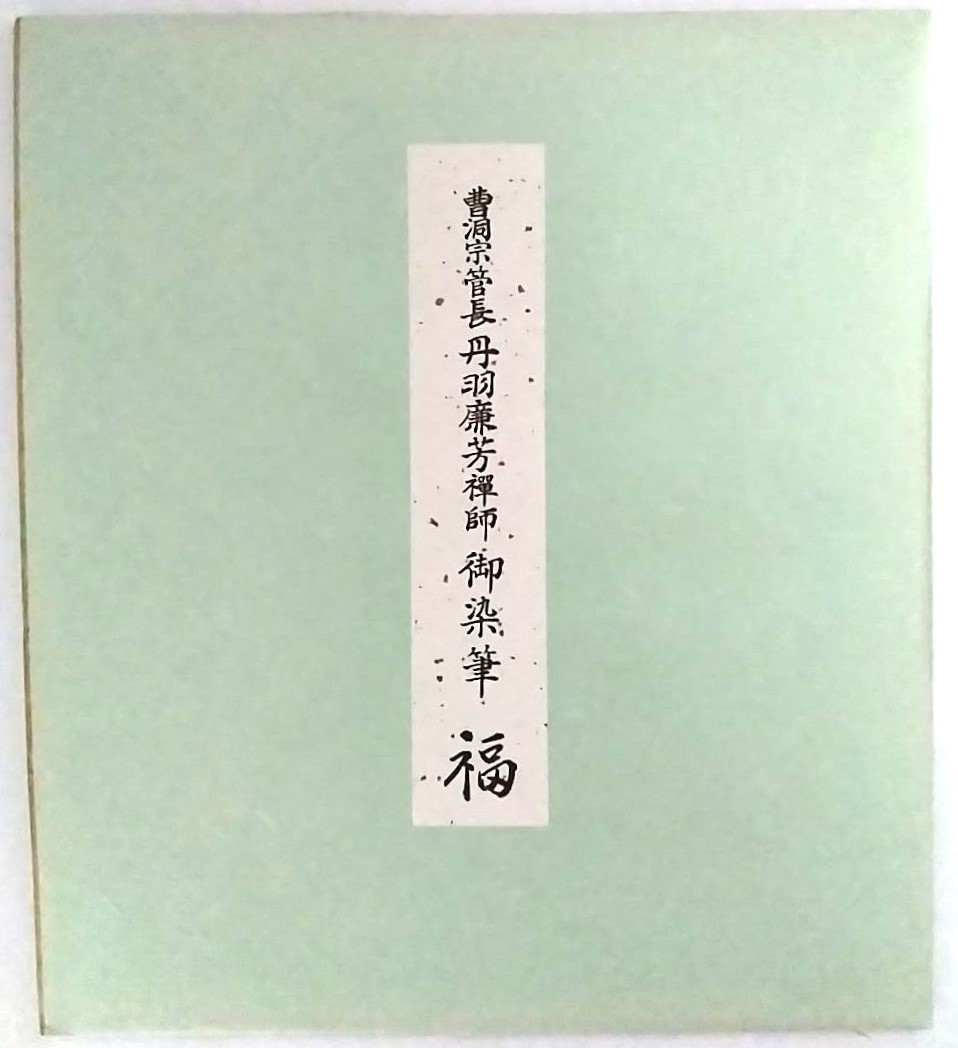 曹洞宗管長丹羽廉芳禪師御染筆 福